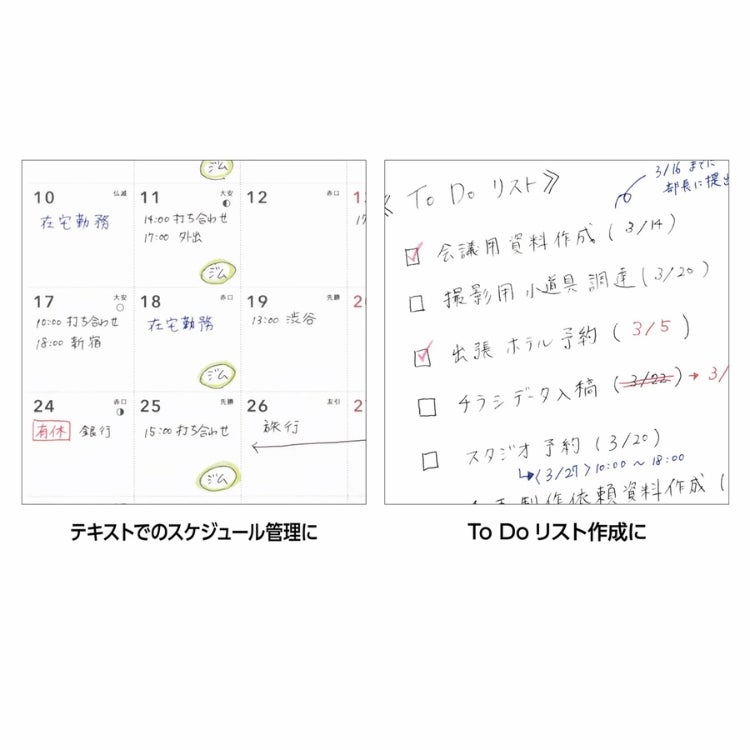 ジム
10 仏滅
在宅勤務
11 大安
14:00 打ち合わせ
17:00 外出
ジム
12 赤口
17 大安
10:00 打ち合わせ
18:00 新宿
18 赤口
在宅勤務
ジム
19 先勝
13:00 渋谷
24 赤口
有休 銀行
25 先勝
15:00 打ち合わせ
ジム
26 友引
旅行
テキストでのスケジュール管理に
To Do リスト》
3/16 までに
部長に提出
会議用資料作成 (3/14)
撮影用 小道具 調達 (3/20)
出張 ホテル 予約 (3/5)
チラシデータ入稿 (3/22) → 3/
スタジオ予約 (3/20)
↳〈3/27〉10:00 ~ 18:00
制作依頼資料作成 (
To Do リスト作成に